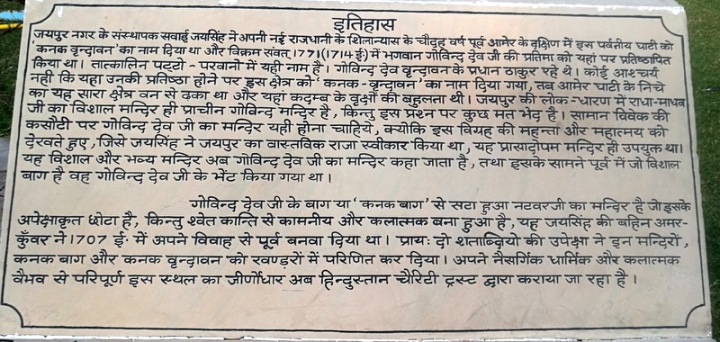 इतिहास
जयपुर नगर के संस्थापक सवाई जयसिंह ने अपनी नई राजधानी के शिलान्यास के चौदह वर्ष पूर्व आमेर के दक्षिण में इस पर्वतीय घाटी को
'कनक वृन्दावन' का नाम दिया था और विक्रम संवत् 1771(1714 ई) में भगवान गोविन्द देव जी की प्रतिमा को यहां पर प्रतिष्ठापित
किया था। तात्कालिन पट्टो - परवानो में यही नाम है। गोविन्द देव वृन्दावन के प्रधान ठाकुर रहे थे। कोई आश्चर्य
नही कि यहा उनकी प्रतिष्ठा होने पर इस क्षेत्र को 'कनक-वृन्दावन' का नाम दिया गया, तब आमेर घाटी के निचे
का यह सारा क्षेत्र वन से ढका था और यहां कदम्ब के वृक्षों की बहुलता थी। जयपुर की लोक-धारण में राधा-माधव
जी का विशाल मन्दिर ही प्राचीन गोविन्द मन्दिर है, किन्तु इस प्रश्न पर कुछ मत भेद है। सामान विवेक की
कसौटी पर गोविन्द देव जी का मन्दिर यही होना चाहिये, क्योकि इस विग्रह की महन्ता और महात्मय को
देखते हुए, जिसे जयसिंह ने जयपुर का वास्तविक राजा स्वीकार किया था, यह प्रासादोपम मन्दिर ही उपयुक्त था।
यह विशाल और भव्य मन्दिर अब गोविन्द देव जी का मन्दिर कहा जाता है, तथा इसके सामने पूर्व में जो विशाल
बाग है वह गोविन्द देव जी के भेंट किया गया था।
गोविन्द देव जी के बाग या 'कनक बाग' से सटा हुआ नटवरजी का मन्दिर है जो इसके
अपेक्षाकृत छोटा है, किन्तु श्वेत कान्ति से कामनीय और कलात्मक बना हुआ है, यह जयसिंह की बहिन अमर-
कुँवर ने 1707 ई. में अपने विवाह से पूर्व बनवा दिया था। प्रायः दो शताब्दियो की उपेक्षा ने इन मन्दिरो,
कनक बाग और कनक वृन्दावन को खण्डरों में परिणित कर दिया। अपने नैसर्गिक धार्मिक और कलात्मक
वैभव से परिपूर्ण इस स्थल का जीर्णोधार अब हिन्दुस्तान चैरिटी ट्रस्ट द्वारा कराया जा रहा है।